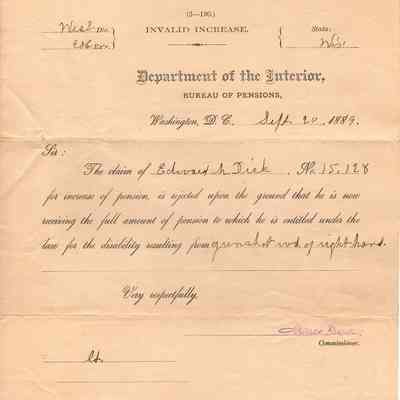 (3—190.)
West Div.
INVALID INCREASE.
State:
Ex'r.
Department of the Interior,
BUREAU OF PENSIONS,
Washington, D. C. Sept. 20, 1889.
Sir:
The claim of Edward h Dick, No. 15,128
for increase of pension, is rejected upon the ground that he is now
receiving the full amount of pension to which he is entitled under the
law for the disability resulting from gunshot wd. of right hand.
Very respectfully,
Commissioner.